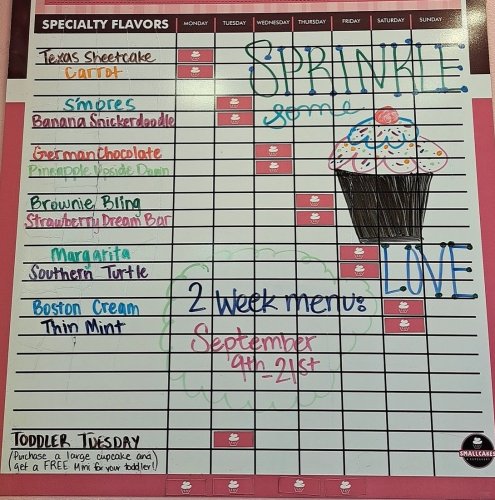 SPECIALTY FLAVORS MONDAY TUESDAY WEDNESDAY THURSDAY FRIDAY SATURDAY SUNDAY
Texas Sheetcake
Carrot
SPRINKLE
S'mores
some
Banana Snickerdoodle
German Chocolate
Pineapple Upside Down
Brownie Bling
Strawberry Dream Bar
Margarita
Southern Turtle
LOVE
Boston Cream
2 Week menu:
Thin Mint
September
9th-21st
TODDLER TUESDAY
(Purchase a large cupcake and
get a FREE Mini for your toddler!)
SMALLCAKES